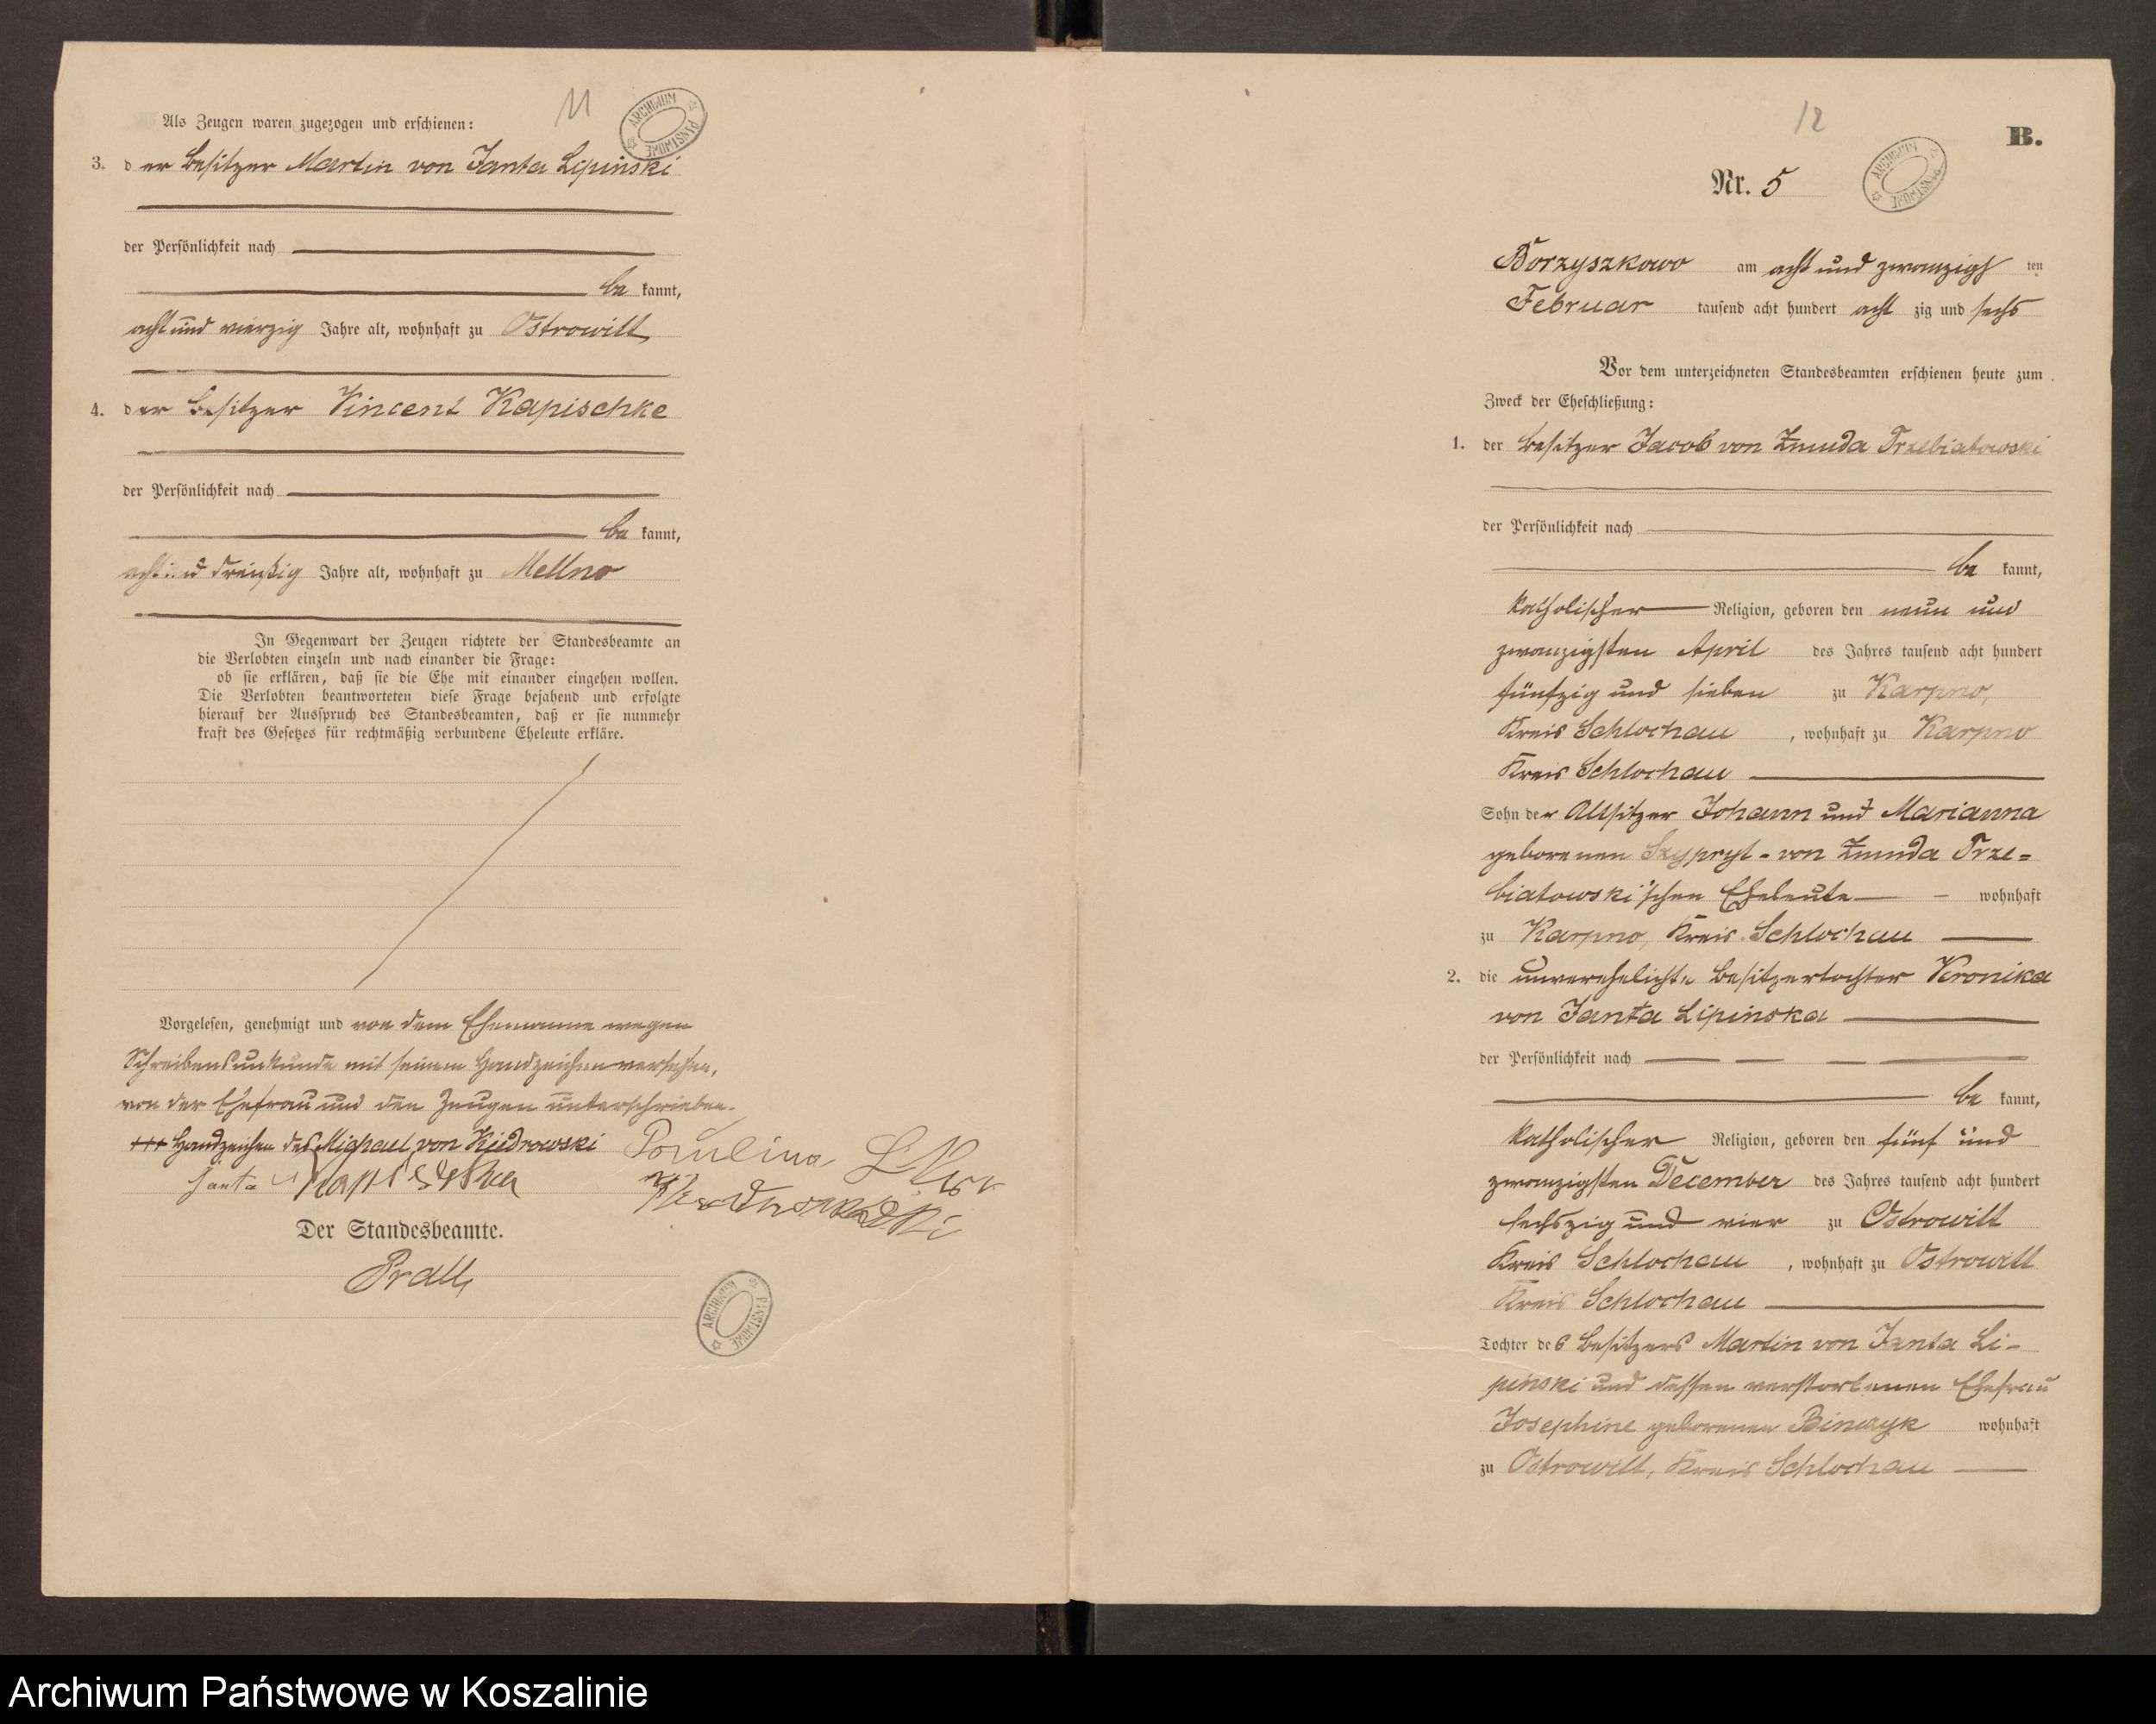 11
ARCHIWUM PAŃSTWOWE
Als Zeugen waren zugezogen und erschienen:
3. der Besitzer Martin von Janta Lipinski
der Persönlichkeit nach
be kannt,
acht und vierzig Jahre alt, wohnhaft zu Ostrowitt,
4. der Besitzer Vincent Kapischke
der Persönlichkeit nach
be kannt,
acht und dreißig Jahre alt, wohnhaft zu Mellno
In Gegenwart der Zeugen richtete der Standesbeamte an
die Verlobten einzeln und nach einander die Frage:
ob sie erklären, daß sie die Ehe mit einander eingehen wollen.
Die Verlobten beantworteten diese Frage bejahend und erfolgte
hierauf der Ausspruch des Standesbeamten, daß er sie nunmehr
kraft des Gesetzes für rechtmäßig verbundene Eheleute erkläre.
Vorgelesen, genehmigt und von dem Ehemanne wegen
Schreibensunkunde mit seinem Handzeichen versehen,
von der Ehefrau und den Zeugen unterschrieben.
+++ Handzeichen des Michael von Kiedrowski Paulina
Janta
Der Standesbeamte.
Prall
ARCHIWUM PAŃSTWOWE
12
B.
Nr. 5
ARCHIWUM PAŃSTWOWE
Borzyszkowo am acht und zwanzigs ten
Februar tausend acht hundert acht zig und sechs
Vor dem unterzeichneten Standesbeamten erschienen heute zum
Zweck der Eheschließung:
1. der Besitzer Jacob von Zmuda Trzebiatowski
der Persönlichkeit nach
be kannt,
katholischer Religion, geboren den neun und
zwanzigsten April des Jahres tausend acht hundert
fünfzig und sieben zu Karpno,
Kreis Schlochau, wohnhaft zu Karpno
Kreis Schlochau
Sohn der Altsitzer Johann und Marianna
geborenen Szypryt - von Zmuda Trze=
biatowski'schen Eheleute wohnhaft
zu Karpno, Kreis Schlochau
2. die unverehelichte Besitzertochter Veronika
von Janta Lipinska
der Persönlichkeit nach
be kannt,
katholischer Religion, geboren den fünf und
zwanzigsten December des Jahres tausend acht hundert
sechszig und vier zu Ostrowitt
Kreis Schlochau, wohnhaft zu Ostrowitt
Kreis Schlochau
Tochter des Besitzers Martin von Janta Li-
pinski und dessen verstorbenen Ehefrau
Josephine geborenen Binczyk wohnhaft
zu Ostrowitt, Kreis Schlochau
Archiwum Państwowe w Koszalinie